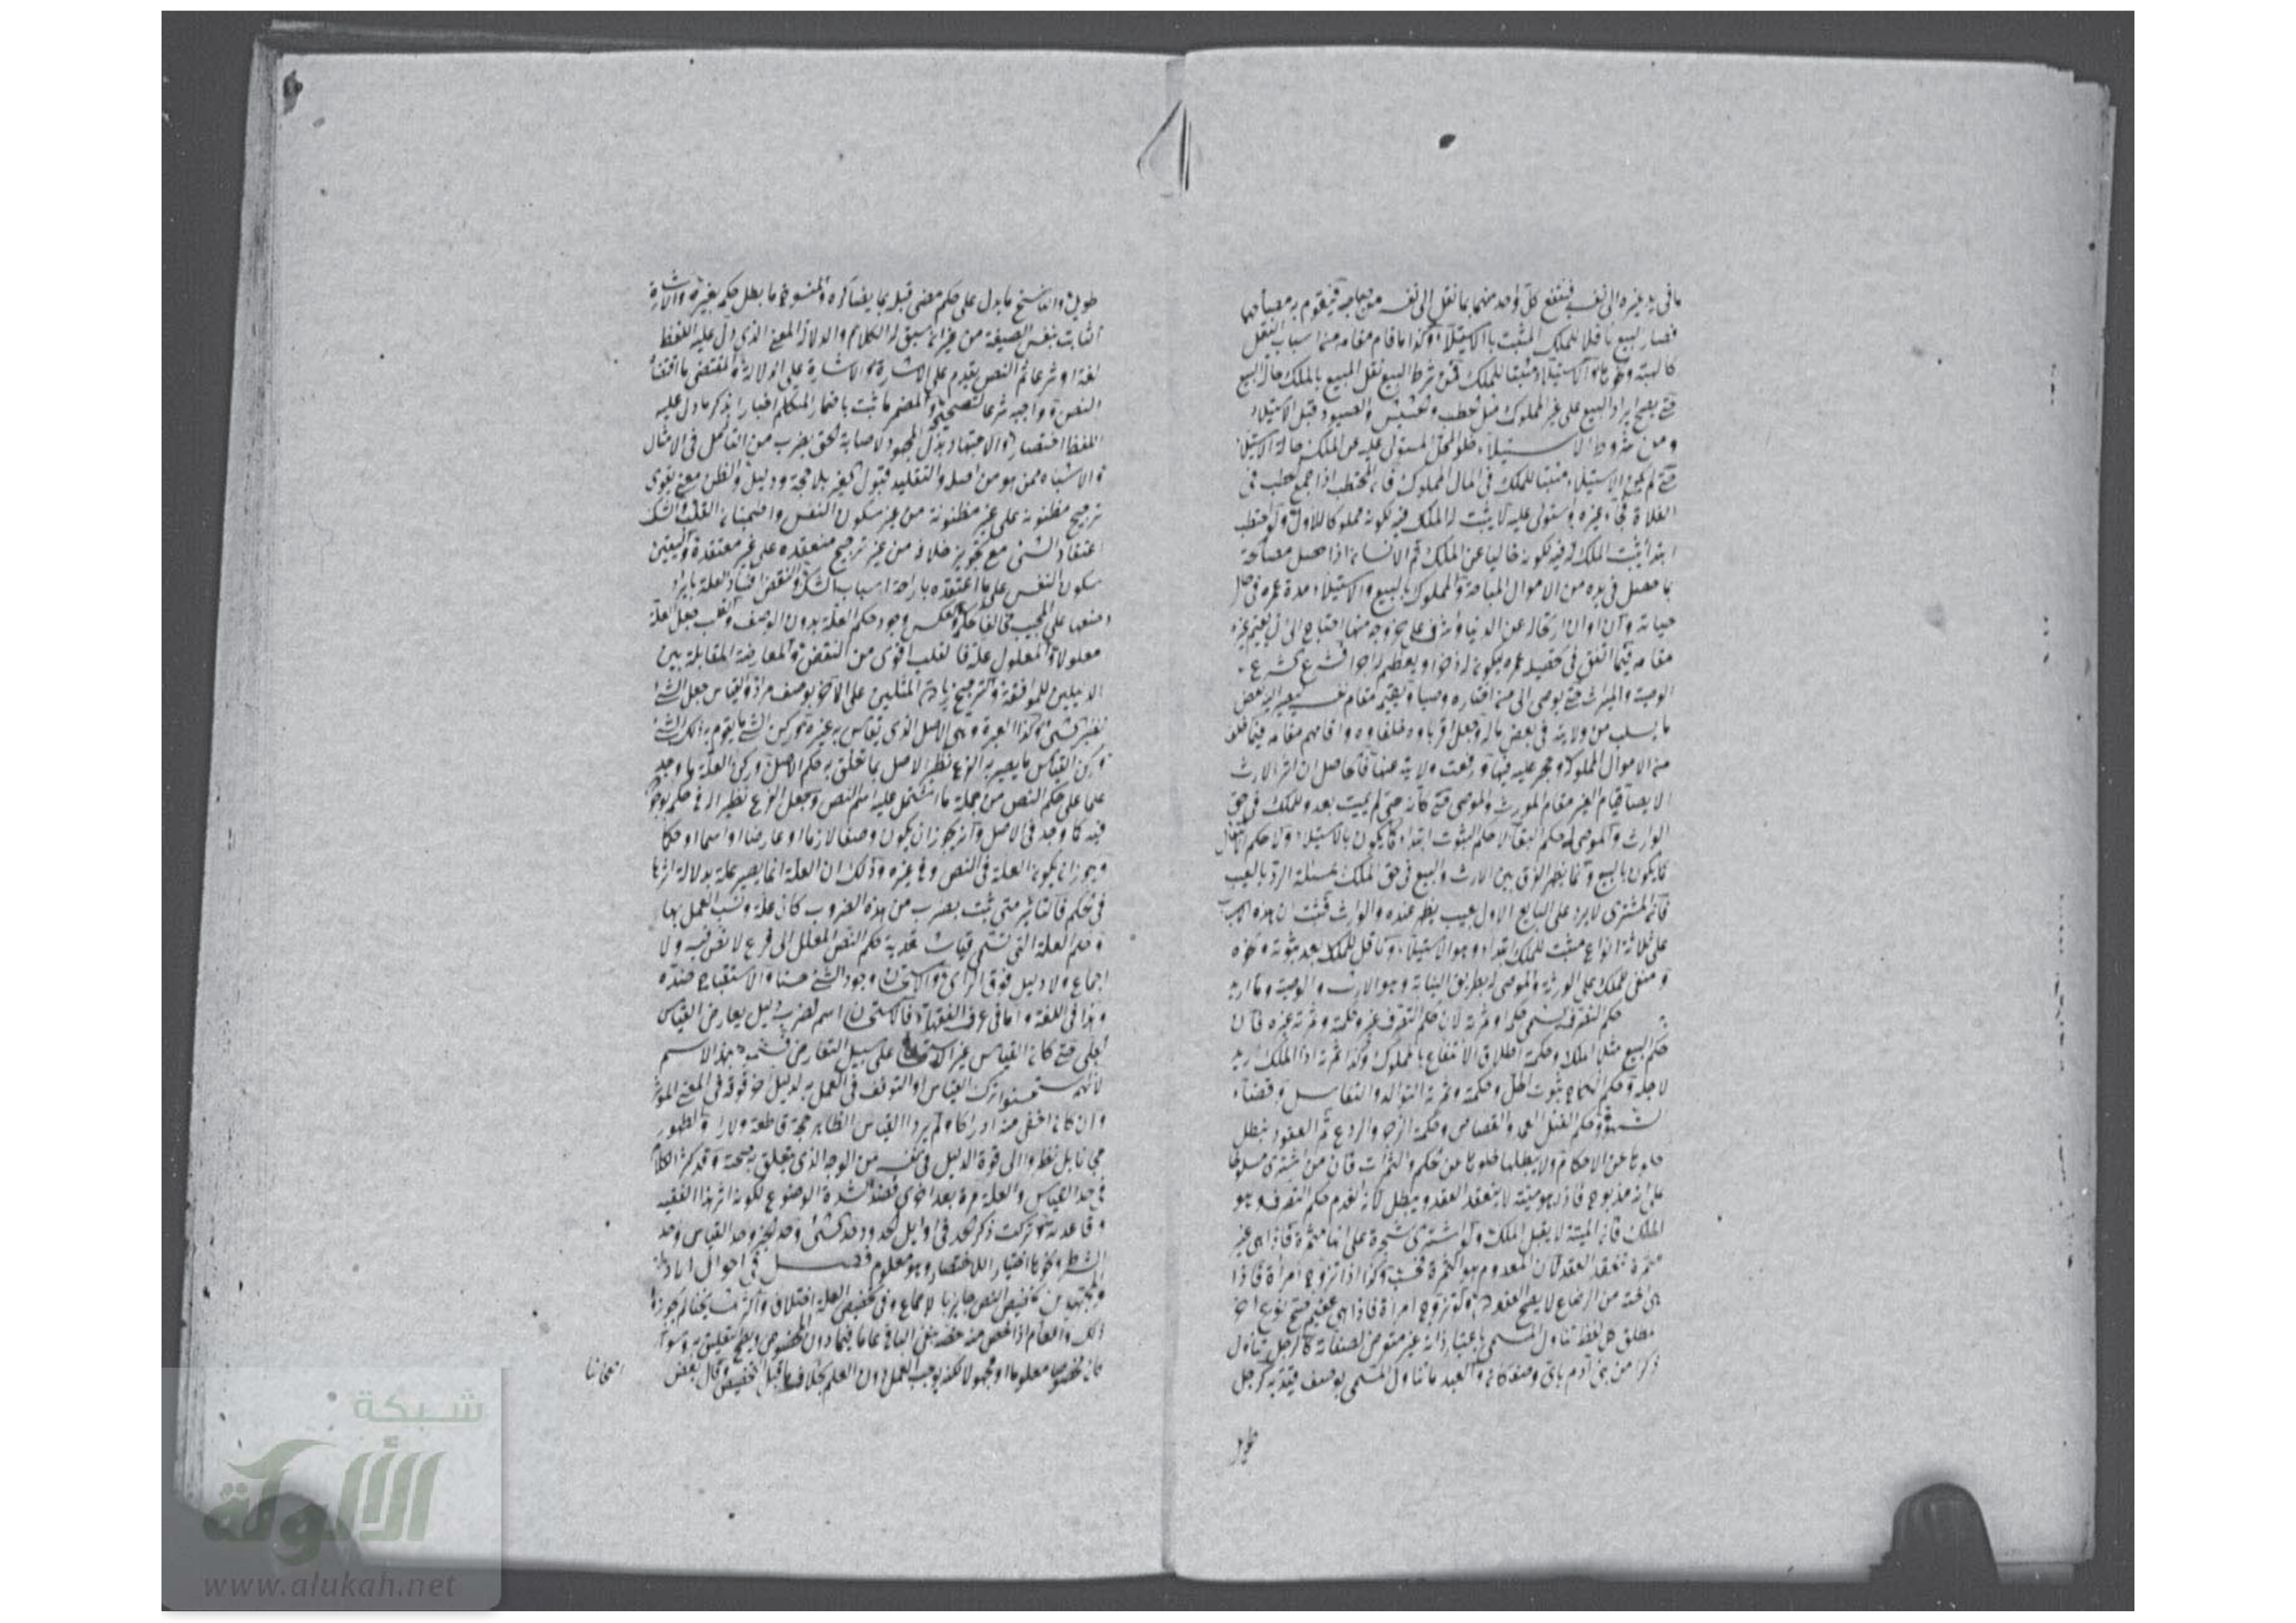 ما فى يد غيره الى نفسه فينتفع كل واحد منهما بما نقل الى نفسه من صاحبه فيقوم به مصالحها
فصار البيع ناقلا للملك المثبت بالاستيلاء وكذا ما قام مقامه من اسباب النقل
كالهبة ونحوها والاستيلاء مثبتا للملك فمن شرط البيع نقل المبيع بالملك حال البيع
حتى يصح ايراد البيع على غير المملوك مثل الحطب والحشيش والصيود قبل الاستيلاء
ومن شروط الاستيلاء خلو المحل المستولى عليه عن الملك حالة الاستيلاء
حتى لم يكن الاستيلاء مثبتا للملك فى المال المملوك فان المحتطب اذا جمع الحطب فى
الفلاة فجاء غيره واستولى عليه لا يثبت له الملك فيه لكونه مملوكا للاول ولو احتطب
ابتداء يثبت الملك له فيه لكونه خاليا عن الملك ثم الانسان اذا حصل مصالحه
بما حصل فى يده من الاموال المباحة والمملوك بالبيع والاستيلاء مدة عمره فى حال
حياته وآن اوان ارتحاله عن الدنيا واشرف على خروجه منها احتاج الى ان يقيم غيره
مقامه فيما انفق فى تحصيله عمره ليكون له ذخرا ويعظم له اجرا فشرع الشرع
الوصية والميراث حتى يوصى الى من اختاره وصيا ويقيم مقام نفسه ليصير اليه بعض
ما يسلب من ولايته فى بعض ماله وجعل اقرباؤه خلفاؤه واقامهم مقامه فيما خلف
من الاموال المملوكة وحجر عليه فيها ورفعت ولايته عنها فالحاصل ان اثر الارث
الايصاء قيام الغير مقام المورث والموصى حتى كأنه حى لم يمت بعد وللملك فى حق
الوارث والموصى له حكم البقاء لا حكم الثبوت ابتداء كما يكون بالاستيلاء ولا حكم الانتقال
كما يكون بالبيع وانما يظهر الفرق بين الارث والبيع فى حق الملك بمسئلة الرد بالعيب
فان المشترى لا يرد على البايع الاول بعيب يظهر عنده والوارث فثبت ان هذه الاسباب
على ثلاثة انواع مثبت للملك ابتداء وهو الاستيلاء وناقل للملك بعد ثبوته وكونه
ومبقى للملك على الورثة والموصى له بطريق النيابة وهو الارث والوصية وما اريد
حكم التصرف يسمى حكما وثمرة لان حكم التصرف غير وحكمة وثمرته غيره فان
حكم البيع مثلا الملك وحكمة اطلاق الانتفاع بالمملوك وكذا ثمرته اذ الملك اريد
لاجله وحكم النكاح ثبوت الحل وحكمته وثمرته التوالد والتناسل وقضاء
الشهوة وحكم القتل العمد والقصاص وحكمة الزجر والردع ثم العقود يبطل
خلوها عن الاحكام ولا يبطلها خلوها عن الحكم والثمرات فان من اشترى مسلوخا
على انه مذبوح فاذا هو ميتة لا ينعقد العقد ويبطل لانه انعدم حكم التصرف وهو
الملك فان الميتة لا يقبل الملك ولو اشترى شجرة على انها مثمرة فاذا هى غير
مثمرة ينعقد العقد لان المعدوم هو الثمرة فحسب وكذا اذا تزوج امرأة فاذا
هى اخته من الرضاع لا يصح العقد ولو تزوج امرأة فاذا هى عقيم صح
مطلق كل لفظ تناول المسمى باعتبار ذاته غير متعرض لصفاته كالرجل تناول
ذكرا من بنى آدم باى وصف كان والمقيد ما تناول المسمى بوصف قيد به كرجل
طويل
طويل والناسخ ما يدل على حكم مضى قبله بما يضاده والمنسوخ ما بطل حكمه بغيره والاشارة
الثابت بنفس الصيغة من غير ان سيق له الكلام والدلالة المعنى الذى دل عليه اللفظ
لغة او شرعا ثم النص يقدم على الاشارة ثم الاشارة على الدلالة والمقتضى ما اقتضاه
النص واجبه شرعا لتصحيحه والمضمر ما ثبت باضمار المتكلم اخبارا بذكر ما دل عليه
اللفظ اختصارا والاجتهاد بذل المجهود لاصابة الحق بضرب من التأمل فى الامثال
والاشباه ممن هو من اهله والتقليد قبول قول الغير بلا حجة ودليل والظن معنى يقوى
ترجيح مظنونه على غير مظنونه من غير سكون النفس واطمينان القلب والشك
اعتقاد الشىء مع تجويز خلافه من غير ترجيح معتقده على غير معتقده واليقين
سكون النفس على ما اعتقده بازاحة اسباب الشك والنقض افساد العلة بايراد
وصفها على المجيب مخالفا حكمه والعكس وجود حكم العلة بدون الوصف والقلب جعل العلة
معلولا والمعلول علة فالقلب اقوى من النقض والمعارضة المقابلة بين
الدليلين للموافقة والترجيح زيادة احد المثلين على الآخر بوصف مراد والقياس جعل الشىء
نظير شىء وكذا العبرة وهى الاصل الذى يقاس به غيره ثم ركن الشىء ما يقوم به ذلك الشىء
وركن القياس ما يصير به الفرع نظير الاصل بما تعلق به حكم الاصل وركن العلة ما وجد
علما على حكم النص من جملة ما اشتمل عليه اسم النص وجعل الفرع نظيرا له فى حكمه بوجوده
فيه كما وجد فى الاصل وانه يجوز ان يكون وصفا لازما او عارضا او اسما او حكما
ويجوز ان يكون العلة فى النص وفى غيره وذلك ان العلة انما يصير علة بدلالة اثرها
فى الحكم فالتاثير متى ثبت بضرب من هذه الضروب كان علة وجب العمل بها
وحكم العلة التى تسمى قياسا تعدية حكم النص المعلل الى فرع لا نص فيه ولا
اجماع ولا دليل فوق الراى والاستحسان وجود الشىء حسنا والاستقباح ضده
وهذا فى اللغة واما فى عرف الفقهاء فالاستحسان اسم لضرب دليل يعارض القياس
الجلى حتى كان القياس غير الاستحسان على سبيل التعارض فسموه بهذا الاسم
لانهم استحسنوا ترك القياس او التوقف فى العمل به لدليل آخر فوقه فى المعنى المؤثر
وان كان اخفى منه ادراكا ولم يردوا القياس الظاهر حجة قاطعة ولا الظهور
رجحانا بل نظروا الى قوة الدليل فى نفسه من الوجه الذى يتعلق به صحته وقد كثر الكلام
فى حد القياس والعلة مرة بعد اخرى فعند شدة الوضوع لكونه اثر هذا الفقيه
وقاعدته ثم تركت ذكر الحد فى اوايل الحدود وحد الشىء وحد الخبر وحد القياس وحد
الشرط ونحوها اختيارا للاختصار وهو معلوم فصل فى احوال
المجتهدين تخصيص النص جايز بالاجماع وفى تخصيص العلة اختلاف واكثر مشايخنا لم يجوزوا
ذلك والعام اذا خص منه بعضه بقى الباقى عاما فيما دون المخصوص ويصح التعلق به سواء
كان المخصوص معلوما او مجهولا لكنه يوجب العمل دون العلم بخلاف ما قبل التخصيص وقال بعض
اصحابنا
شبكة
الألوكة
www.alukah.net